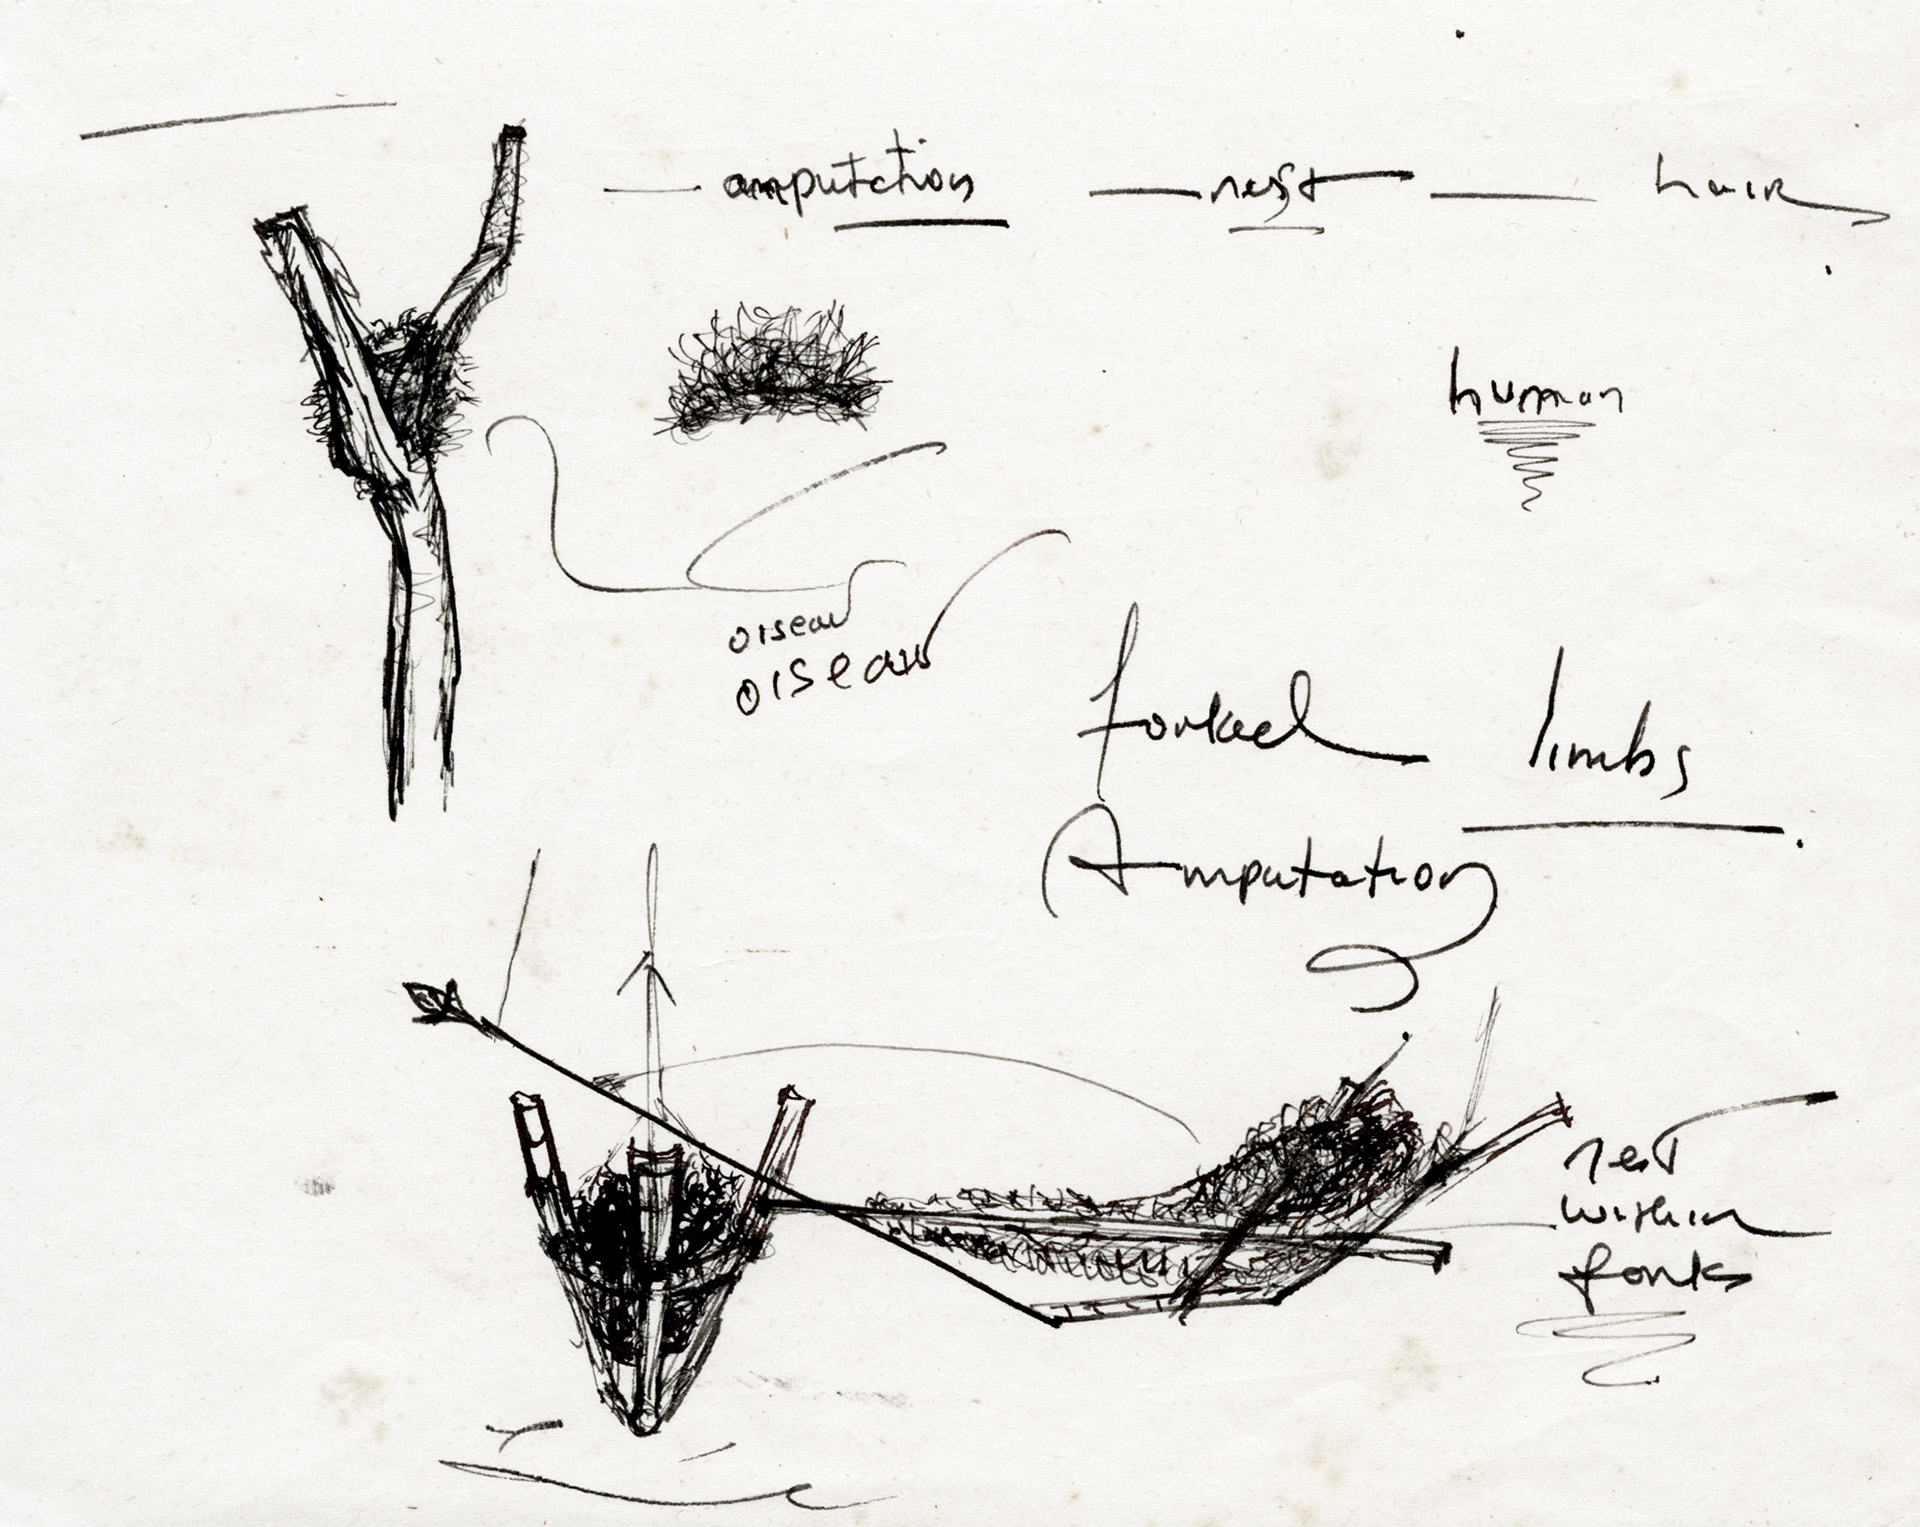 amputation — nest — hair
human
oiseau
oiseau
forked limbs
Amputation
nest
within
forks